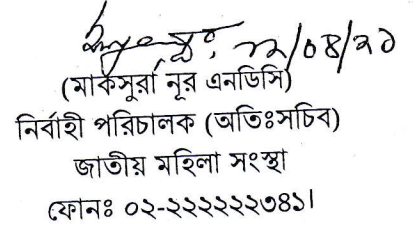 ১২/০৪/২১
(মাকসুরা নূর এনডিসি)
নির্বাহী পরিচালক (অতিঃসচিব)
জাতীয় মহিলা সংস্থা
ফোনঃ ০২-২২২২২২৩৪১।